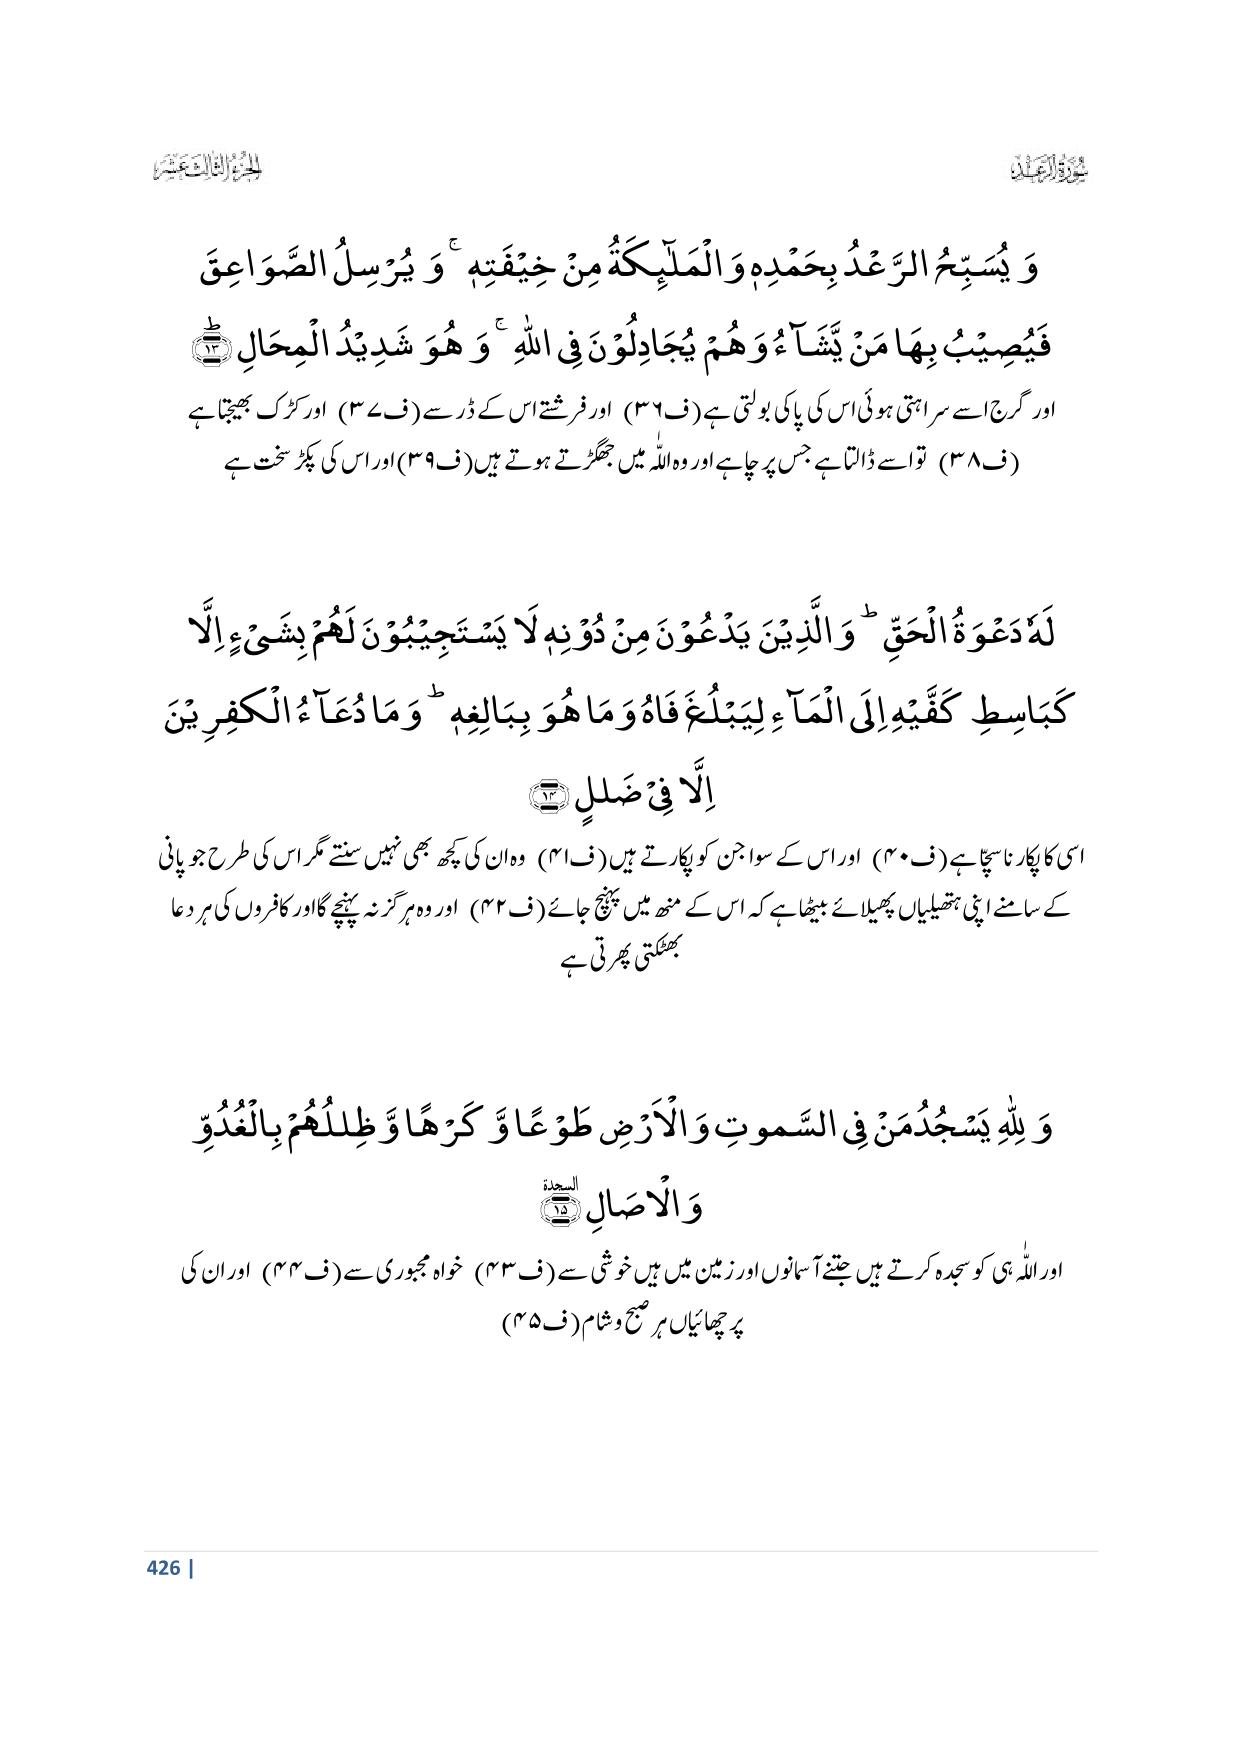 سُوْرَةُ الرَّعْد
الجُزْءُ الثَّالِثَ عَشَر
وَ یُسَبِّحُ الرَّعْدُ بِحَمْدِهٖ وَ الْمَلٰٓىِٕكَةُ مِنْ خِیْفَتِهٖ ۚ وَ یُرْسِلُ الصَّوَاعِقَ
فَیُصِیْبُ بِهَا مَنْ یَّشَآءُ وَ هُمْ یُجَادِلُوْنَ فِی اللّٰهِ ۚ وَ هُوَ شَدِیْدُ الْمِحَالِ ؕ ﴿۱۳﴾
اور گرج اسے سراہتی ہوئی اس کی پاکی بولتی ہے (ف۳۶) اور فرشتے اس کے ڈر سے (ف۳۷) اور کڑک بھیجتا ہے
(ف۳۸) تو اسے ڈالتا ہے جس پر چاہے اور وہ اللّٰہ میں جھگڑتے ہوتے ہیں (ف۳۹) اور اس کی پکڑ سخت ہے
لَهٗ دَعْوَةُ الْحَقِّ ؕ وَ الَّذِیْنَ یَدْعُوْنَ مِنْ دُوْنِهٖ لَا یَسْتَجِیْبُوْنَ لَهُمْ بِشَیْءٍ اِلَّا
كَبَاسِطِ كَفَّیْهِ اِلَى الْمَآءِ لِیَبْلُغَ فَاهُ وَ مَا هُوَ بِبَالِغِهٖ ؕ وَ مَا دُعَآءُ الْكٰفِرِیْنَ
اِلَّا فِیْ ضَلٰلٍ ﴿۱۴﴾
اسی کا پکارنا سچّا ہے (ف۴۰) اور اس کے سوا جن کو پکارتے ہیں (ف۴۱) وہ ان کی کچھ بھی نہیں سنتے مگر اس کی طرح جو پانی
کے سامنے اپنی ہتھیلیاں پھیلائے بیٹھا ہے کہ اس کے منھ میں پہنچ جائے (ف۴۲) اور وہ ہرگز نہ پہنچے گا اور کافروں کی ہر دعا
بھٹکتی پھرتی ہے
وَ لِلّٰهِ یَسْجُدُ مَنْ فِی السَّمٰوٰتِ وَ الْاَرْضِ طَوْعًا وَّ كَرْهًا وَّ ظِلٰلُهُمْ بِالْغُدُوِّ
وَ الْاٰصَالِ ﴿۱۵﴾ السجدة
اور اللّٰہ ہی کو سجدہ کرتے ہیں جتنے آسمانوں اور زمین میں ہیں خوشی سے (ف۴۳) خواہ مجبوری سے (ف۴۴) اور ان کی
پرچھائیاں ہر صبح و شام (ف۴۵)
426 |